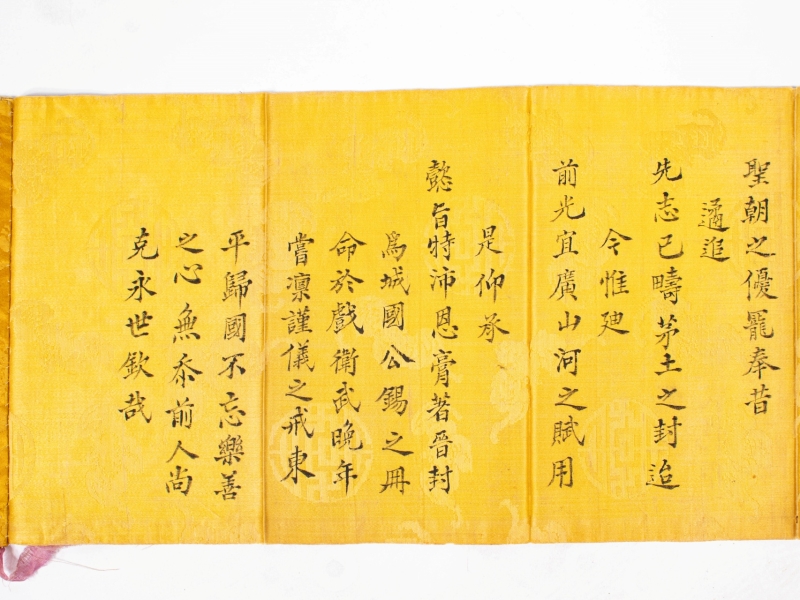 聖朝之優寵奉昔
遹追
先志已疇茅土之封迨
今惟廸
前光宜廣山河之賦用
是仰承
懿旨特沛恩膏著晉封
爲城國公錫之冊
命於戲衛武晚年
嘗凛謹儀之戒東
平歸國不忘樂善
之心無忝前人尚
克永世欽哉